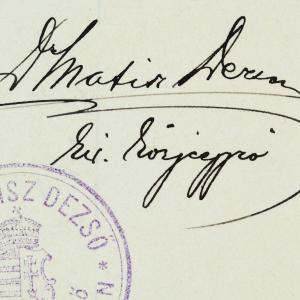 Dr Matisz Dezső
kir. közjegyző
ISZ DEZSŐ